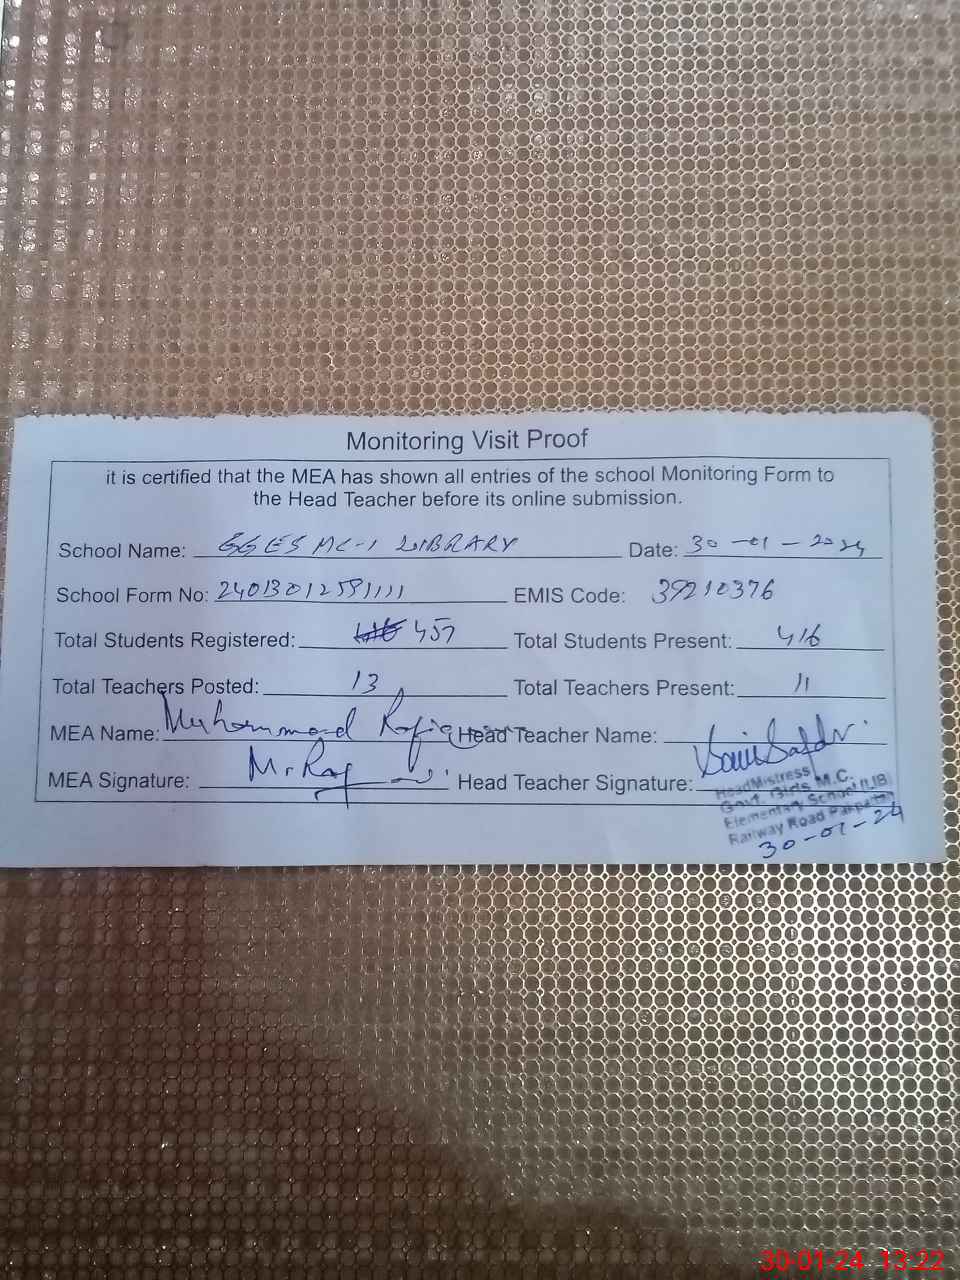 Monitoring Visit Proof
it is certified that the MEA has shown all entries of the school Monitoring Form to
the Head Teacher before its online submission.
School Name: GGES MC-1 LIBRARY Date: 30-01-2024
School Form No: 24013012591111 EMIS Code: 39210376
Total Students Registered: 457 Total Students Present: 416
Total Teachers Posted: 13 Total Teachers Present: 11
MEA Name: Muhammad Rafiq Head Teacher Name:
MEA Signature: M. Raf Head Teacher Signature:
HeadMistress
Govt. Girls M.C.
Elementary School (LIB)
Railway Road Pakpattan
30-01-24
30-01-24 13:22